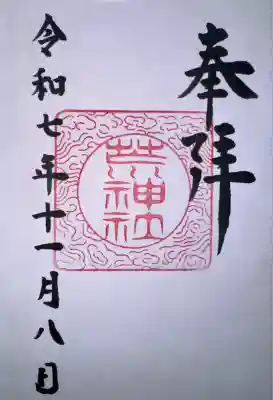 奉拝
令和七年十一月八日